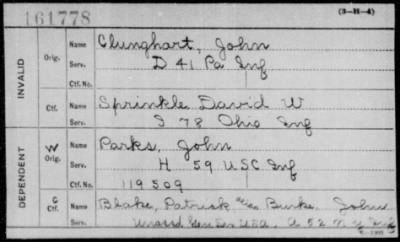 161778
(3-H-4)
INVALID
Orig. Name Clunghart, John
Serv. D 41 Pa Inf
Ctf. No.
Ctf. Name Sprinkle David W
Serv. I 78 Ohio Inf
DEPENDENT
W Orig. Name Parks, John
Serv. H 59 USC Inf
Ctf. No. 119509
C Ctf. Name Blake, Patrick Burke, John
Serv. Unassd USA. 52 N.Y.